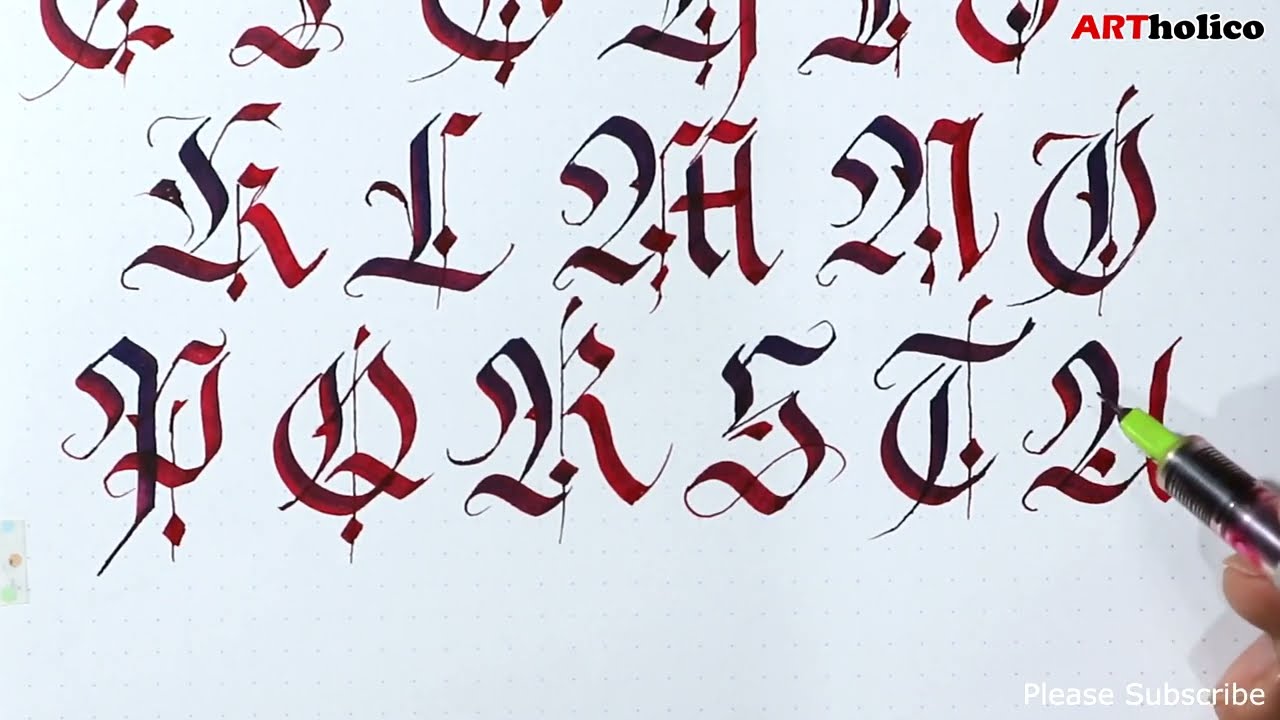 ARTholico
K L M N O
P Q R S T U
Please Subscribe